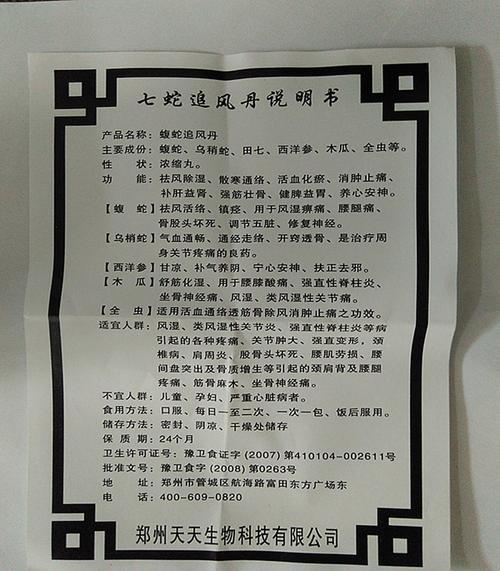 七蛇追风丹说明书
产品名称：蝮蛇追风丹
主要成份：蝮蛇、乌稍蛇、田七、西洋参、木瓜、全虫等。
性　　状：浓缩丸。
功　　能：祛风除湿、散寒通络、活血化瘀、消肿止痛、
补肝益肾、强筋壮骨、健脾益胃、养心安神。
【蝮　蛇】祛风活络、镇痉、用于风湿痹痛、腰腿痛、
骨股头坏死、调节五脏、修复神经。
【乌稍蛇】气血通畅、通经走络、开窍透骨、是治疗周
身关节疼痛的良药。
【西洋参】甘凉、补气养阴、宁心安神、扶正去邪。
【木　瓜】舒筋化湿、用于腰膝酸痛、强直性脊柱炎、
坐骨神经痛、风湿、类风湿性关节痛。
【全　虫】适用活血通络透筋骨除风消肿止痛之功效。
适宜人群：风湿、类风湿性关节炎、强直性脊柱炎等病
引起的各种疼痛、关节肿大、强直变形，颈
椎病、肩周炎，股骨头坏死、腰肌劳损、腰
间盘突出及骨质增生等引起的颈肩背及腰腿
疼痛、筋骨麻木、坐骨神经痛。
不宜人群：儿童、孕妇、严重心脏病者。
食用方法：口服、每日一至二次、一次一包、饭后服用。
储存方法：密封、阴凉、干燥处储存
保 质 期：24个月
卫生许可证号：豫卫食证字 (2007) 第410104-002611号
批准文号：豫卫食字 (2008) 第0263号
地　　址：郑州市管城区航海路富田东方广场东
电　　话：400-609-0820
郑州天天生物科技有限公司